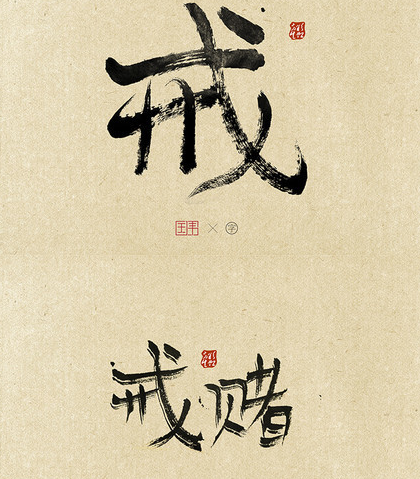 戒
王韦 × 字
戒赌